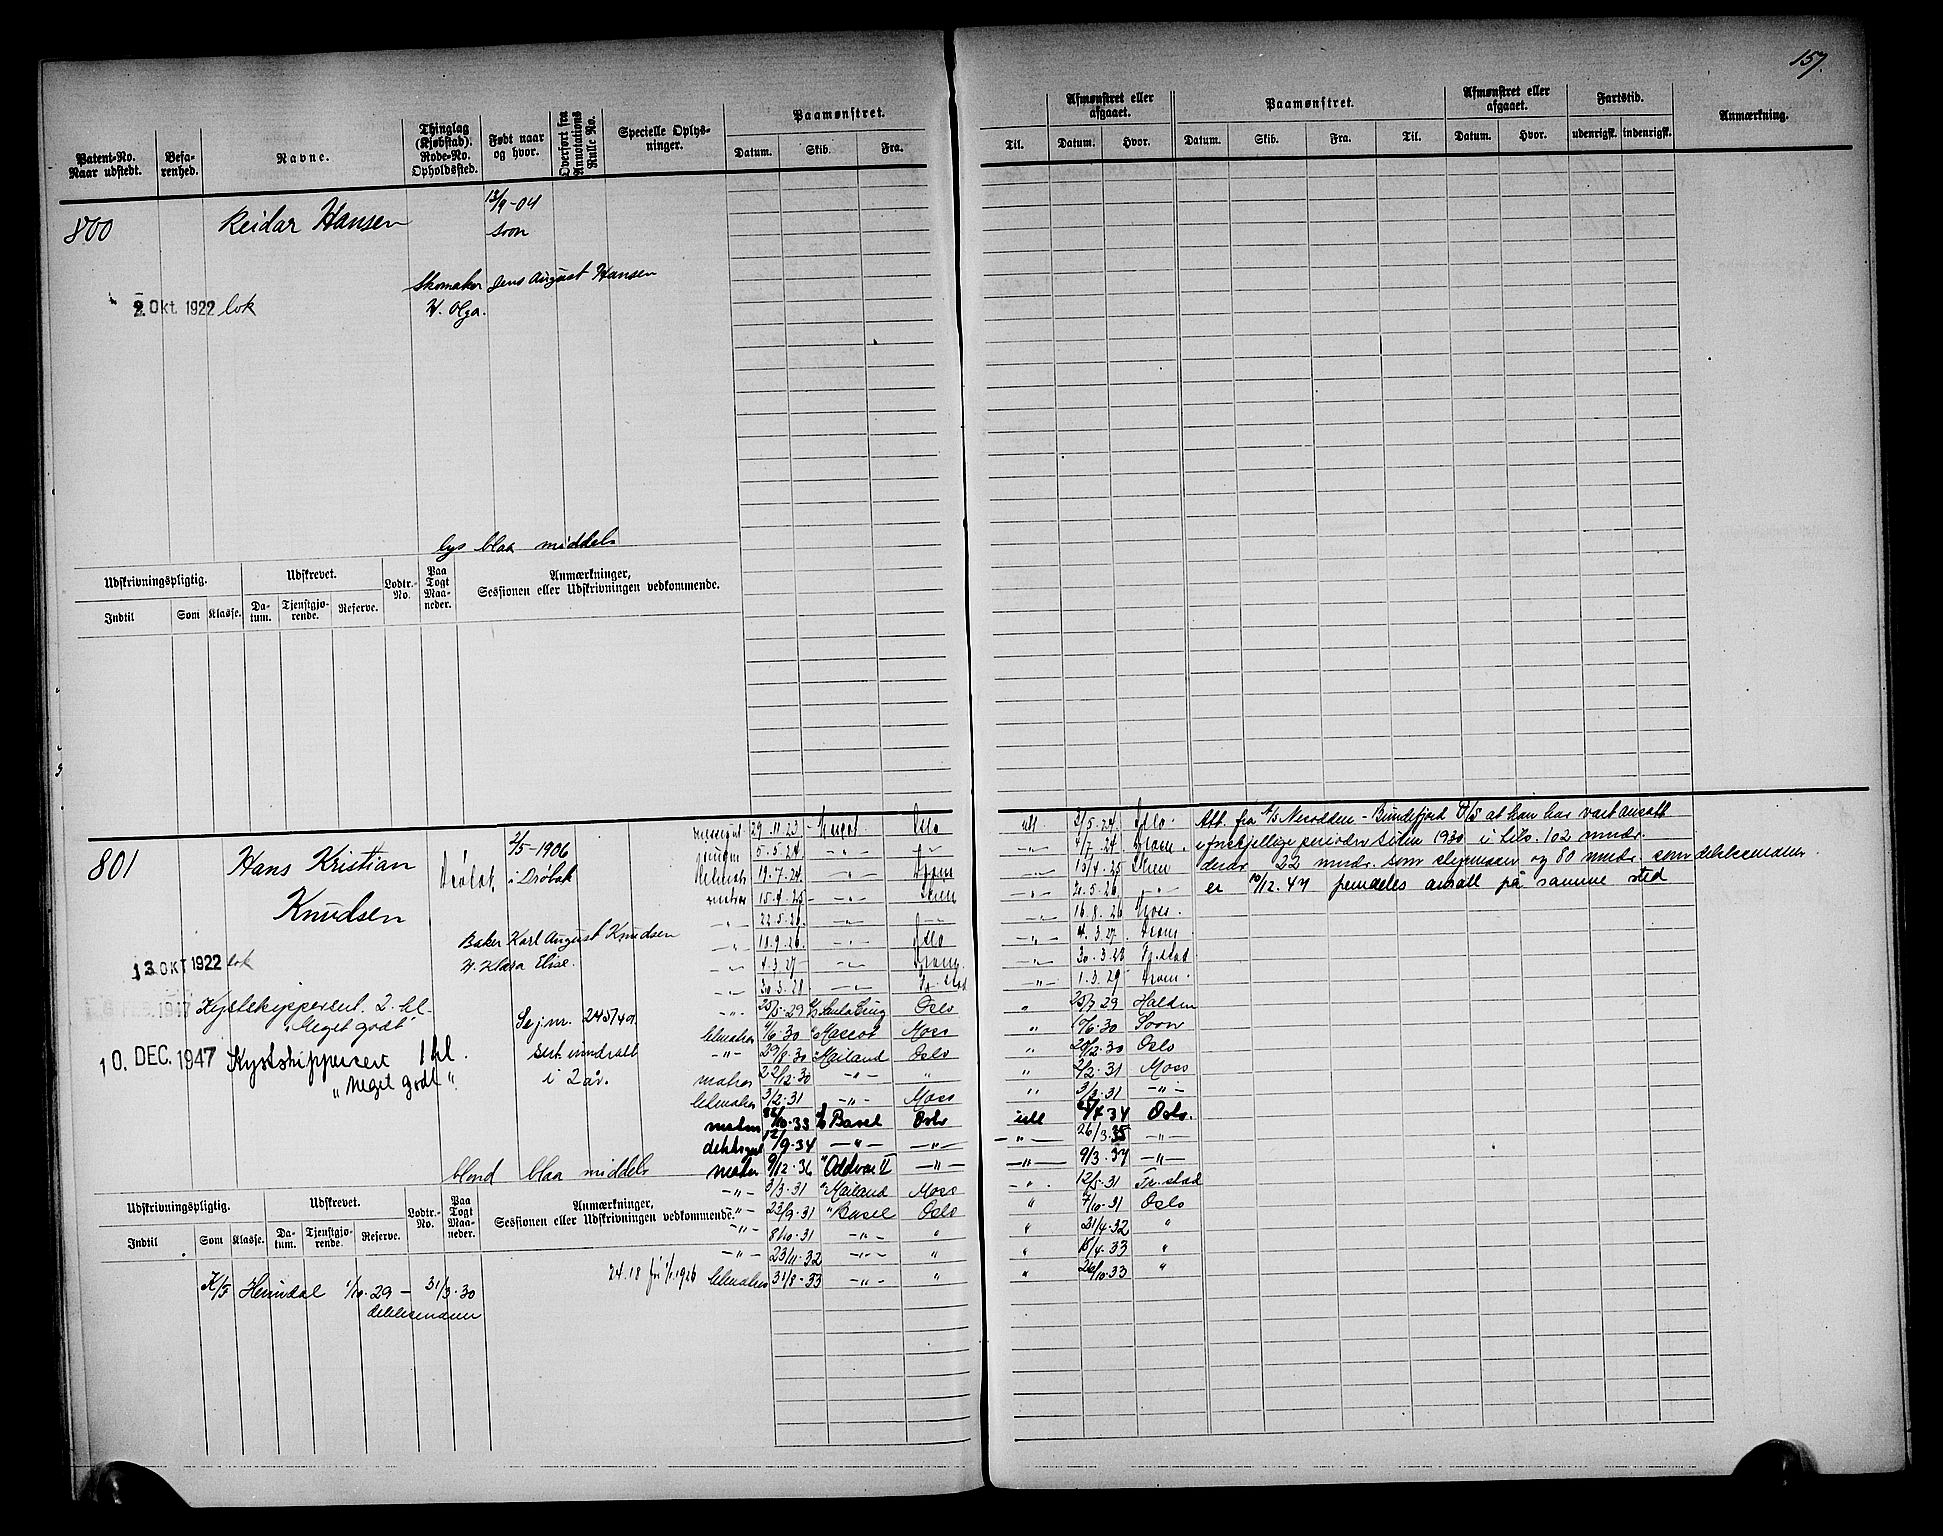 157.
Patent-No. Naar udstedt. Befarenhed. Navne. Thinglag (Kjøbstad). Rode-No. Opholdssted. Født naar og hvor. Overført fra Annotations Rulle No. Specielle Oplysninger. Paamønstret. Datum. Skib. Fra. Til. Afmønstret eller afgaaet. Datum. Hvor. Paamønstret. Datum. Skib. Fra. Til. Afmønstret eller afgaaet. Datum. Hvor. Fartstid. udenrigsk. indenrigsk. Anmærkning.
800 Reidar Hansen 13/9-04
Soon
Skomaker Jens August Hansen
2. Okt. 1922 lok H. Olga.
lys blaa middels
Udskrivningspligtig. Udskrevet. Lodtr.-No. Paa Togt Maaneder. Anmærkninger, Sessionen eller Udskrivningen vedkommende.
Indtil Som Klasse. Datum. Tjenstgjørende. Reserve.
801 Hans Kristian Knudsen Drøbak 2/5-1906 i Drøbak
Baker Karl August Knudsen
H. Klara Elise.
13 OKT 1922 lok
1947 Kystskippersert. 2. kl.
"Meget godt"
10. DEC. 1947 Kystskippersert 1 kl.
"Meget godt"
sert. unndratt
i 2 år.
blond blaa middels
29.11.23 Oslo
5.5.24 -"-
19.7.24 -"- Dram
15.9.25 -"- Skien
22.5.26 -"-
18.9.26 -"- Oslo
4.3.27 -"- Dram.
30.3.28 -"- Fr.stad
25/5.29 Oslo
letmatros 4/6.30 Mascot Moss
-"- 29/8.30 Mailand Oslo
matros 22/12.30 -"- "
letmatros 3/2.31 -"- Moss
matros 10.33 Basel Oslo
dekksgut 12/9.34 -"- -"-
matros 9/12.36 "Oddvar II -"-
-"- 3/3.31 "Mailand Moss
-"- 23/9.31 "Basel Oslo
-"- 8/10.31 -"- "
-"- 23/11.32 -"- "
24.18 før 1/1.1926 letmatros 31/8-33 -"- "
2/5.24 Oslo.
4/7.24
13/4.25 Skien
2.5.26 -"-
16.8.26 Moss.
4.3.27. Dram.
30.3.28 Fr.stad
1.3.29 Dram.
25/7.29 Halden
6.30 Soon
20/12.30 Oslo
2/2.31 Moss
3/3.31 -"-
34 Oslo.
26/3.35 -"-
9/3.37 -"-
12/5.31 Fr.stad
7/10.31 Oslo
21/4.32 "
4.33 "
26/10.33 "
Att. fra A/S Nesodden-Bundefjord D/S at han har vært ansatt
i forskjellige perioder siden 1930 i tils. 102 mndr.
derav 22 mndr. som styrmann og 80 mndr. som dekksmann
er 10/12.47 fremdeles ansatt på samme sted
Udskrivningspligtig. Udskrevet. Lodtr.-No. Paa Togt Maaneder. Anmærkninger, Sessionen eller Udskrivningen vedkommende.
Indtil Som Klasse. Datum. Tjenstgjørende. Reserve.
K/S Heimdal 1/10.29 - 31/3.30
dekksmann